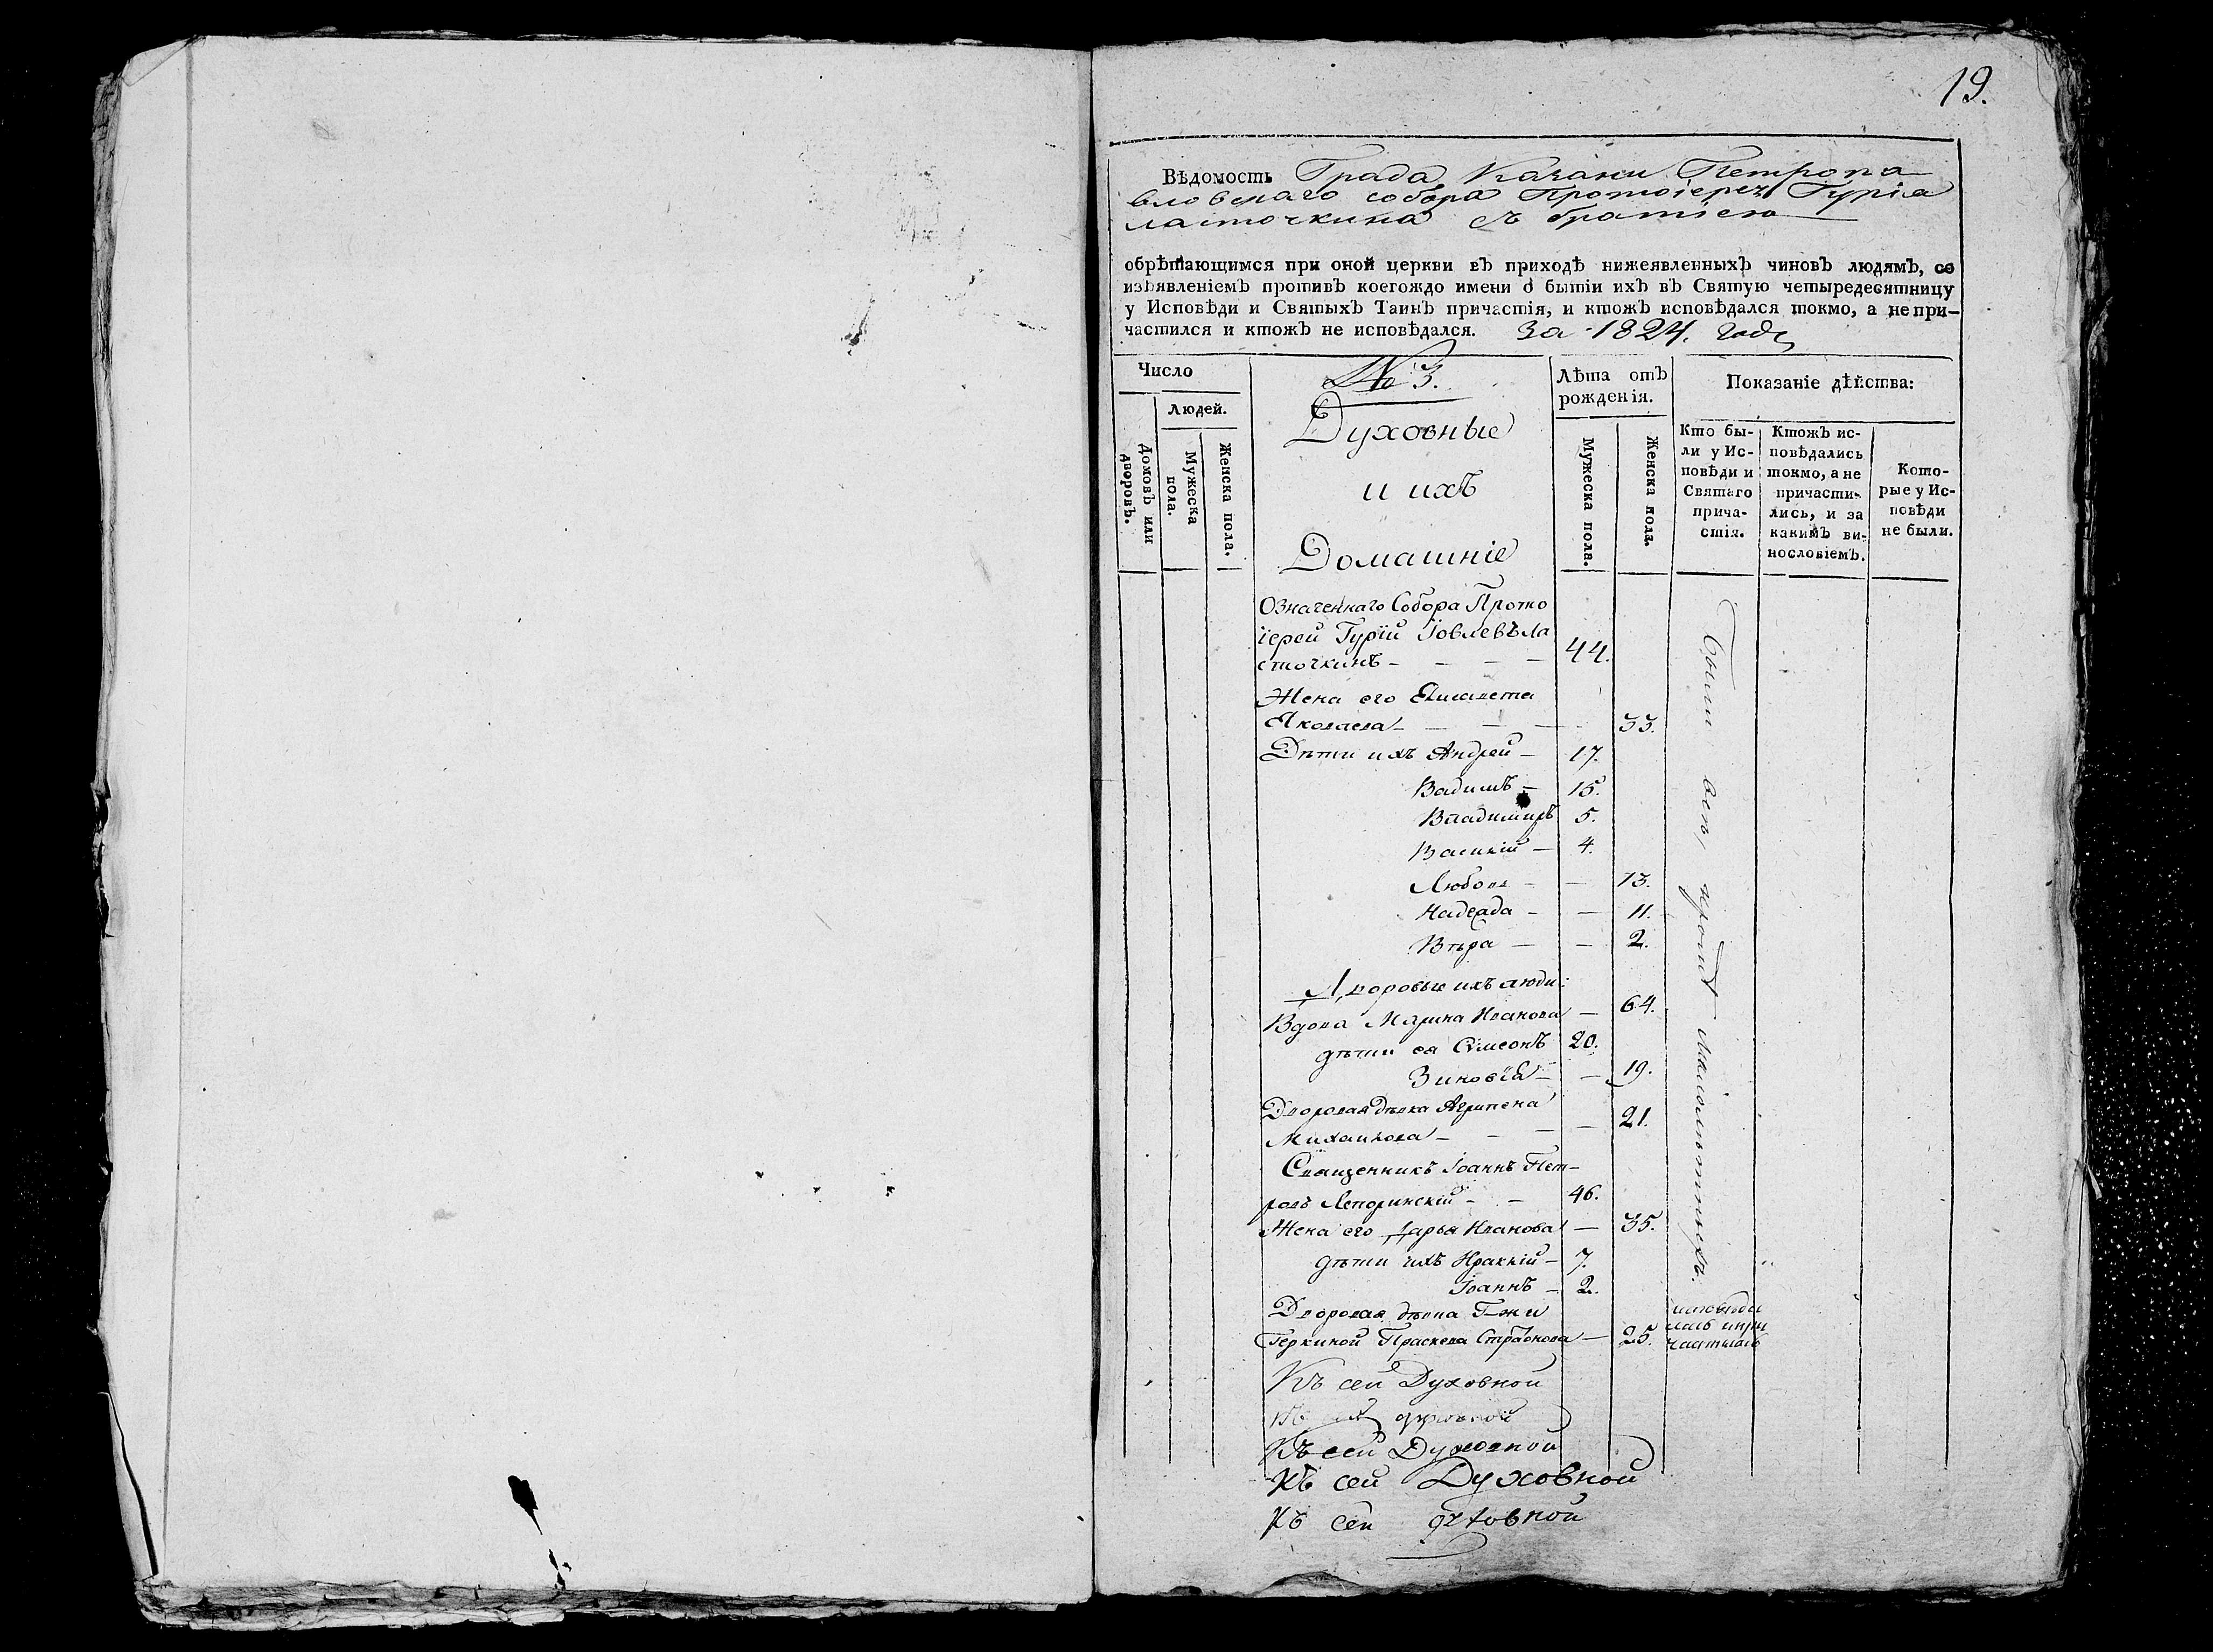 19.
Вѣдомость Града Казани Петропа
вловскаго собора Протоіерея Гурія
ласточкина съ братіею
обрѣтающимся при оной церкви въ приходѣ нижеявленныхъ чиновъ людямъ, со
изъявленіемъ противъ коегождо имени о бытіи ихъ въ Святую четыредесятницу
у Исповѣди и Святыхъ Таинъ причастія, и ктожъ исповѣдался токмо, а не при-
частился и ктожъ не исповѣдался. За 1824. годъ
Число
Людей.
Домовъ или дворовъ.
Мужеска пола.
Женска пола.
№ 3.
Духовные
и ихъ
Домашніе
Лѣта отъ
рожденія.
Мужеска пола.
Женска пола.
Показаніе дѣйства:
Кто бы-
ли у Ис-
повѣди и
Святаго
прича-
стія.
Ктожъ ис-
повѣдались
токмо, а не
причасти-
лись, и за
какимъ ви-
нословіемъ.
Кото-
рые у Ис-
повѣди
не были.
Означеннаго Собора Прото
іерей Гурій Іовлевъ Ла
сточкинъ - - - - 44.
Жена его Елисавета
Яковлева - - - - 33.
Дѣти ихъ Андрей - 17.
Вадимъ - 15.
Владимиръ 5.
Василій - 4.
Любовь - - 13.
Надежда - - 11.
Вѣра - - 2.
Дворовые ихъ люди:
Вдова Марина Иванова - 64.
дѣти ея Сѵмеонъ 20.
Зиновія - - 19.
Дворовая дѣвка Агрипена
Михаилова - - - - 21.
Священникъ Іоаннъ Пет-
ровъ Лепоринскій - - 46.
Жена его Дарья Иванова - 35.
дѣти ихъ Ираклій - 7.
Іоаннъ - 2.
Были всѣ, кромѣ малолѣтныхъ.
Дворовая дѣвка Г-жи
Геркиной Праскева Стравонова - 25.
исповѣда
лась и при
частилась
Къ сей Духовной
Къ сей Духовной
Къ сей Духовной
Къ сей духовной